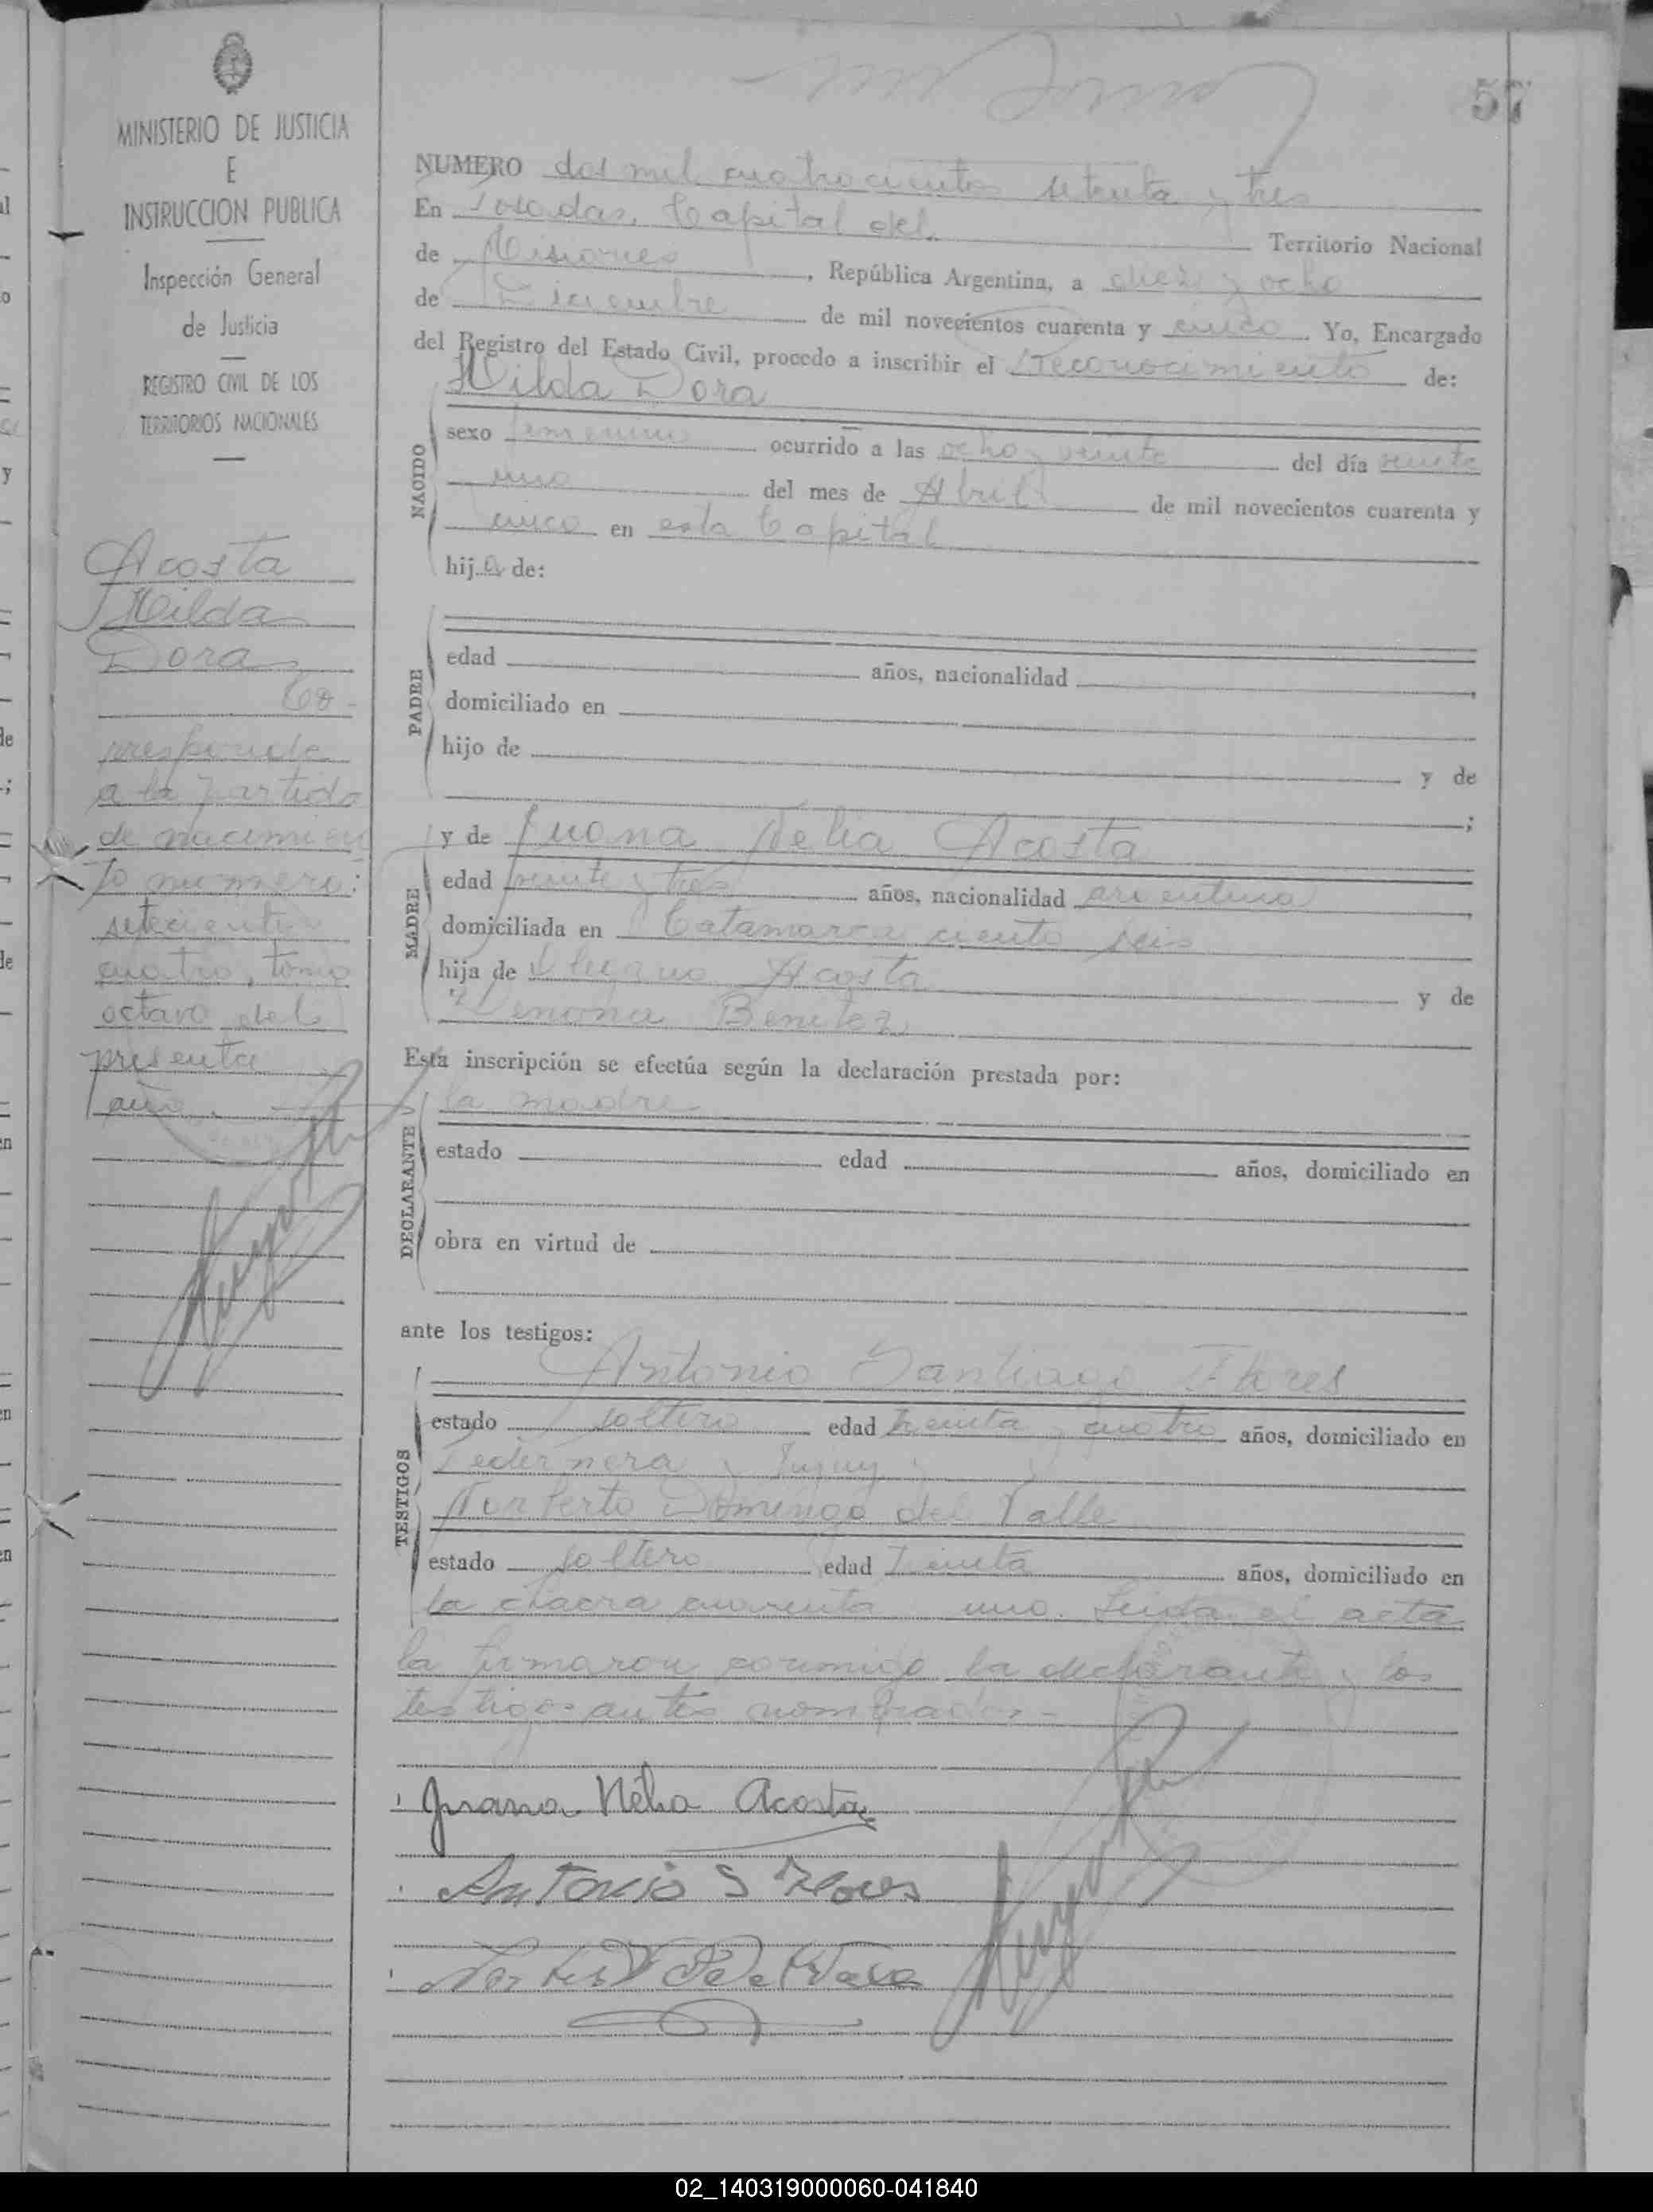 57
MINISTERIO DE JUSTICIA
E
INSTRUCCION PUBLICA
Inspección General
de Justicia
REGISTRO CIVIL DE LOS
TERRITORIOS NACIONALES
Acosta
Hilda
Dora
Co-
rresponde
a la partida
de nacimien
to numero:
setecientos
cuatro, tomo
octavo del
presente
año.
NUMERO dos mil cuatrocientos setenta y tres
En Posadas, Capital del Territorio Nacional
de Misiones, República Argentina, a diez y ocho
de Diciembre de mil novecientos cuarenta y cinco. Yo, Encargado
del Registro del Estado Civil, procedo a inscribir el Reconocimiento de:
Hilda Dora
NACIDO
sexo femenino ocurrido a las ocho y veinte del día veinte
uno del mes de Abril de mil novecientos cuarenta y
cinco en esta Capital
hija de:
PADRE
edad años, nacionalidad
domiciliado en
hijo de y de
;
y de Juana Nelia Acosta
MADRE
edad veinte y tres años, nacionalidad argentina
domiciliada en Catamarca ciento seis
hija de Acosta y de
Benitez
Esta inscripción se efectúa según la declaración prestada por:
la madre
DECLARANTE
estado edad años, domiciliado en
obra en virtud de
ante los testigos:
Antonio Santiago Flores
TESTIGOS
estado soltero edad treinta y cuatro años, domiciliado en
Pedernera y Jujuy y
Norberto Domingo del Valle
estado soltero edad treinta años, domiciliado en
la chacra cuarenta uno. Leida el acta
la firmaron conmigo la declarante y los
testigos antes nombrados.-
Juana Nélia Acosta
Antonio S Flores
02_140319000060-041840